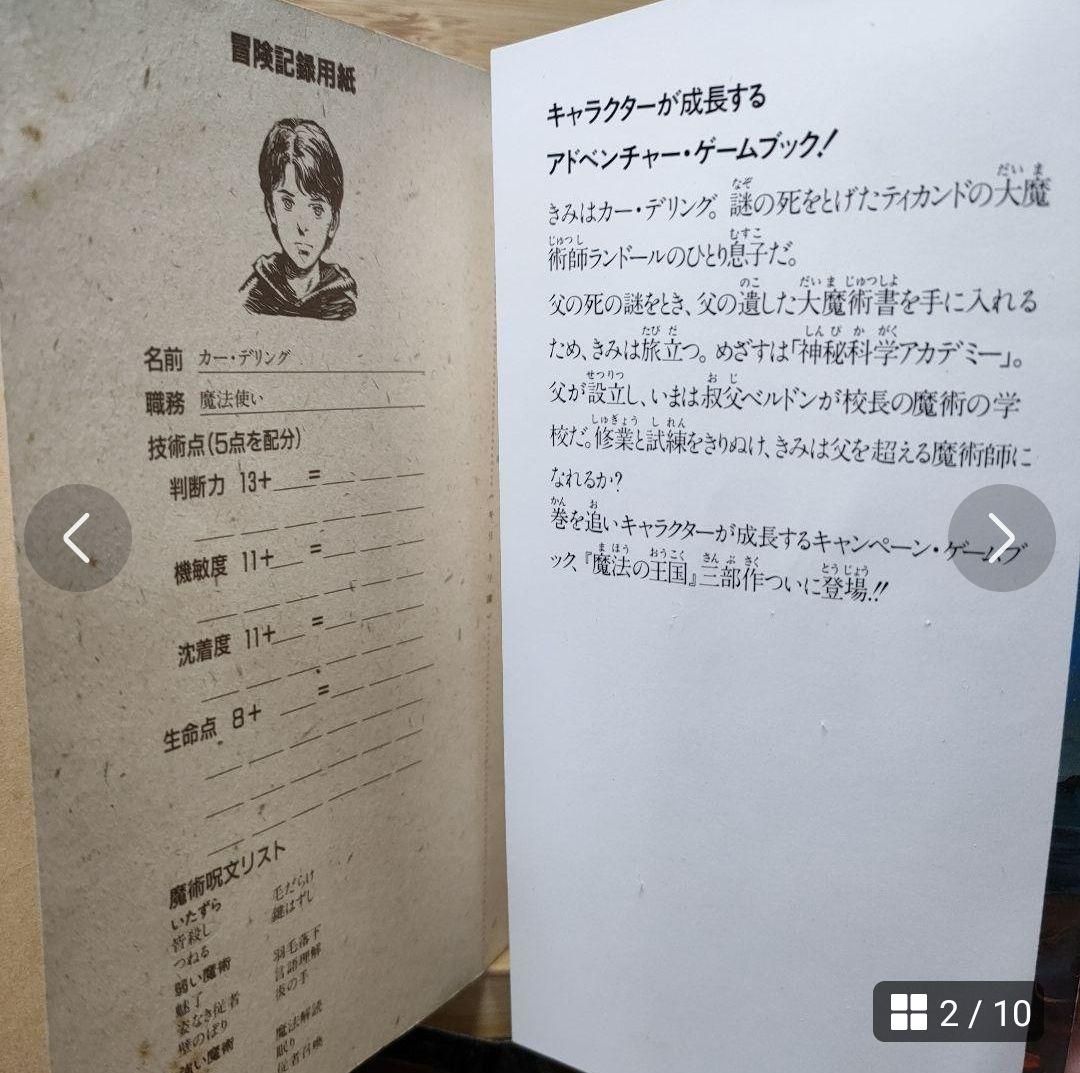 冒険記録用紙
名前 カー・デリング
職務 魔法使い
技術点(5点を配分)
判断力 13+ =
機敏度 11+ =
沈着度 11+ =
生命点 8+ =
魔術呪文リスト
いたずら 毛だらけ
皆殺し 鍵はずし
つねる
弱い魔術 羽毛落下
魅了 言語理解
姿なき従者 後の手
壁のぼり
強い魔術 魔法解読
眠り
従者召喚
キャラクターが成長する
アドベンチャー・ゲームブック!
きみはカー・デリング。謎の死をとげたティカンドの大魔
術師ランドールのひとり息子だ。
父の死の謎をとき、父の遺した大魔術書を手に入れる
ため、きみは旅立つ。めざすは「神秘科学アカデミー」。
父が設立し、いまは叔父ベルドンが校長の魔術の学
校だ。修業と試練をきりぬけ、きみは父を超える魔術師に
なれるか?
巻を追いキャラクターが成長するキャンペーン・ゲームブ
ック、『魔法の王国』三部作ついに登場!!
2 / 10